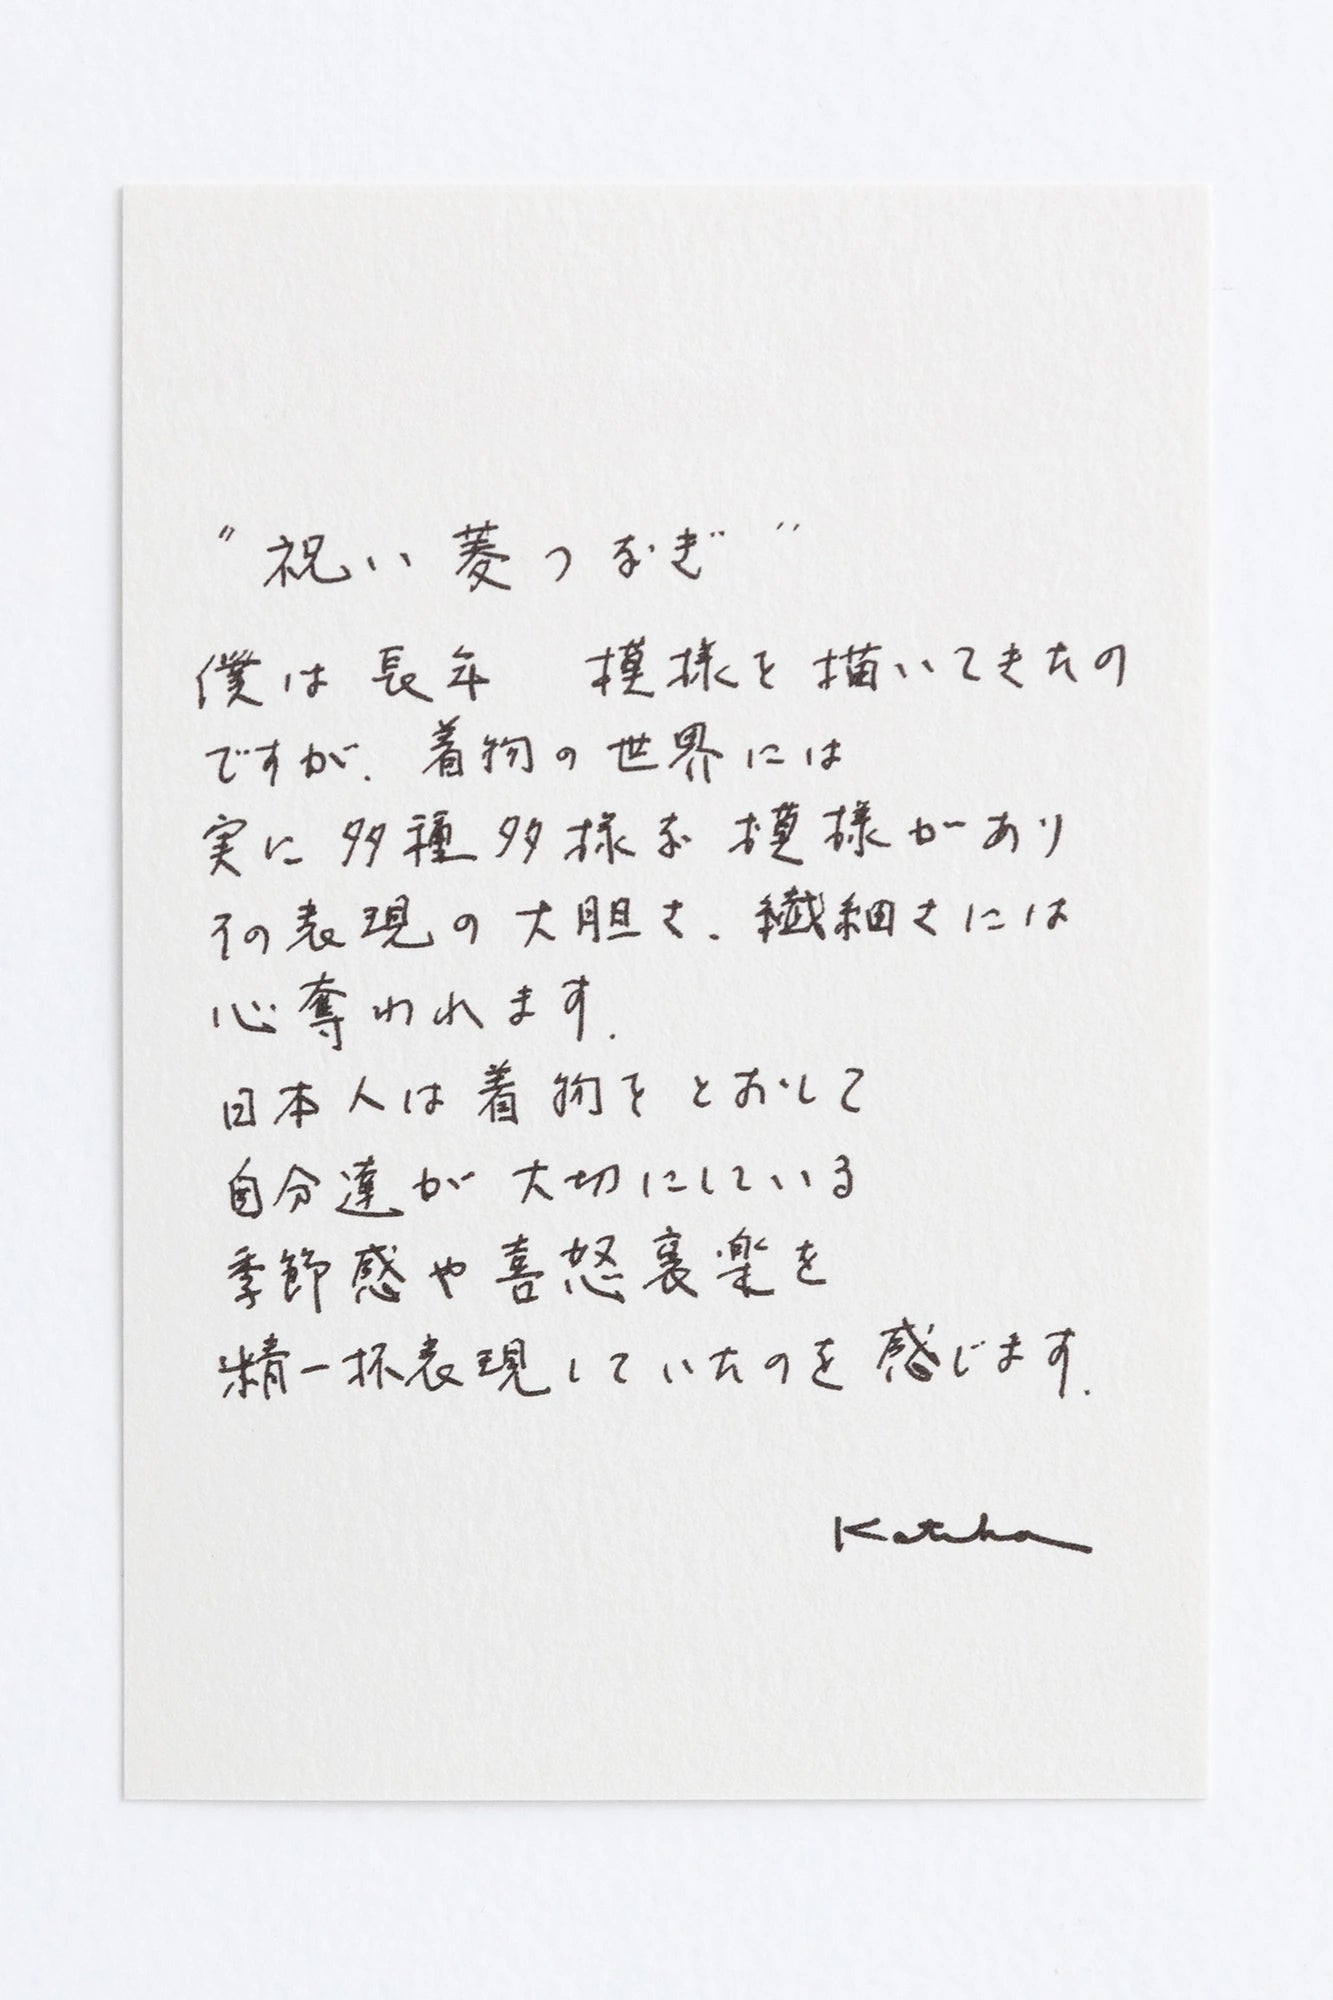 "祝い菱つなぎ"
僕は長年 模様を描いてきたの
ですが、着物の世界には
実に多種多様な模様があり
その表現の大胆さ、繊細さには
心奪われます。
日本人は着物をとおして
自分達が大切にしている
季節感や喜怒哀楽を
精一杯表現していたのを感じます。
Katsha